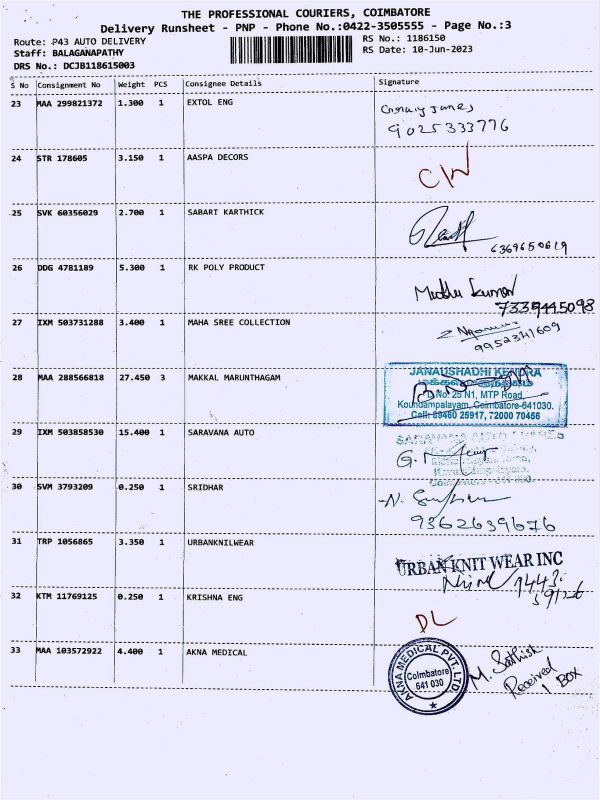 THE PROFESSIONAL COURIERS, COIMBATORE
Delivery Runsheet - PNP - Phone No.:0422-3505555 - Page No.:3
Route: P43 AUTO DELIVERY RS No.: 1186150
Staff: BALAGANAPATHY RS Date: 10-Jun-2023
DRS No.: DCJB118615003
S No Consignment No Weight PCS Consignee Details Signature
23 MAA 299821372 1.300 1 EXTOL ENG
9025333776
24 STR 178605 3.150 1 AASPA DECORS
25 SVK 60356029 2.700 1 SABARI KARTHICK
6369650619
26 DDG 4781189 5.300 1 RK POLY PRODUCT
Kumar
7339445098
27 IXM 503731288 3.400 1 MAHA SREE COLLECTION
9952341609
28 MAA 288566818 27.450 3 MAKKAL MARUNTHAGAM
JANAUSHADHI KENDRA
மக்கள் மருந்தகம்
D.No: 25 N1, MTP Road,
Koundampalayam, Coimbatore-641030.
Cell: 69460 25917, 72000 70456
29 IXM 503858530 15.400 1 SARAVANA AUTO
30 SVM 3793209 0.250 1 SRIDHAR
9362639676
31 TRP 1056865 3.350 1 URBANKNILWEAR
URBAN KNIT WEAR INC
32 KTM 11769125 0.250 1 KRISHNA ENG
DL
33 MAA 103572922 4.400 1 AKNA MEDICAL
AKNA MEDICAL PVT. LTD.
Coimbatore
641 030
M. Sathish
Received
1 BOX